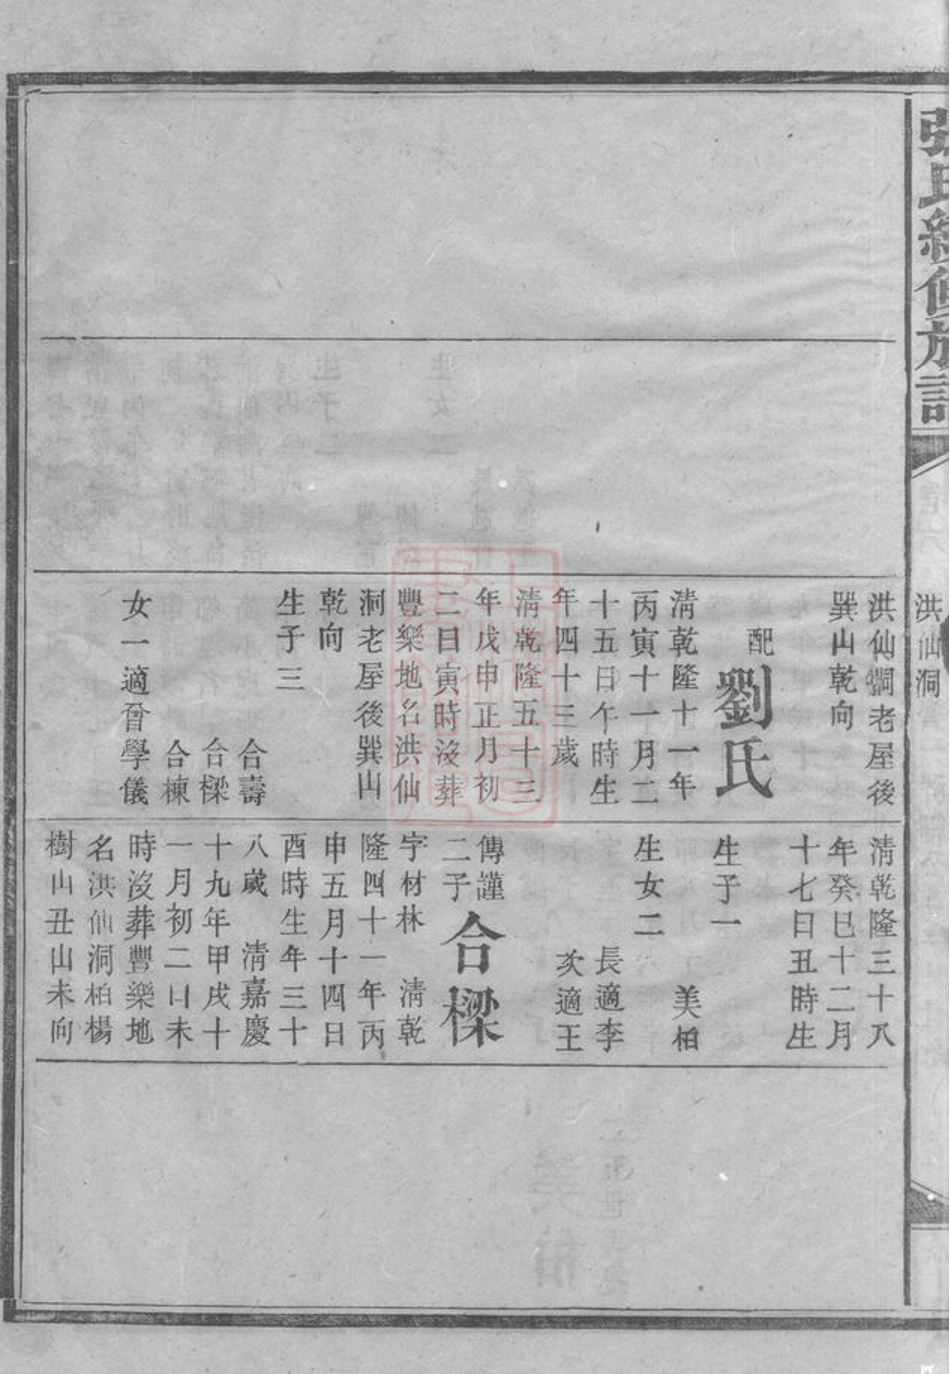 張氏續修族譜
洪仙洞
洪仙洞老屋後
巽山乾向
配劉氏
清乾隆十一年
丙寅十一月二
十五日午時生
年四十三歲
清乾隆五十三
年戊申正月初
二日寅時沒葬
豐樂地名洪仙
洞老屋後巽山
乾向
生子三
合壽
合樑
合棟
女一適晉學儀
清乾隆三十八
年癸巳十二月
十七日丑時生
生子一
美柏
生女二
長適李
次適王
傳謹
二子
合樑
字材林 清乾
隆四十一年丙
申五月十四日
酉時生年三十
八歲 清嘉慶
十九年甲戌十
一月初二日未
時沒葬豐樂地
名洪仙洞柏楊
樹山丑山未向